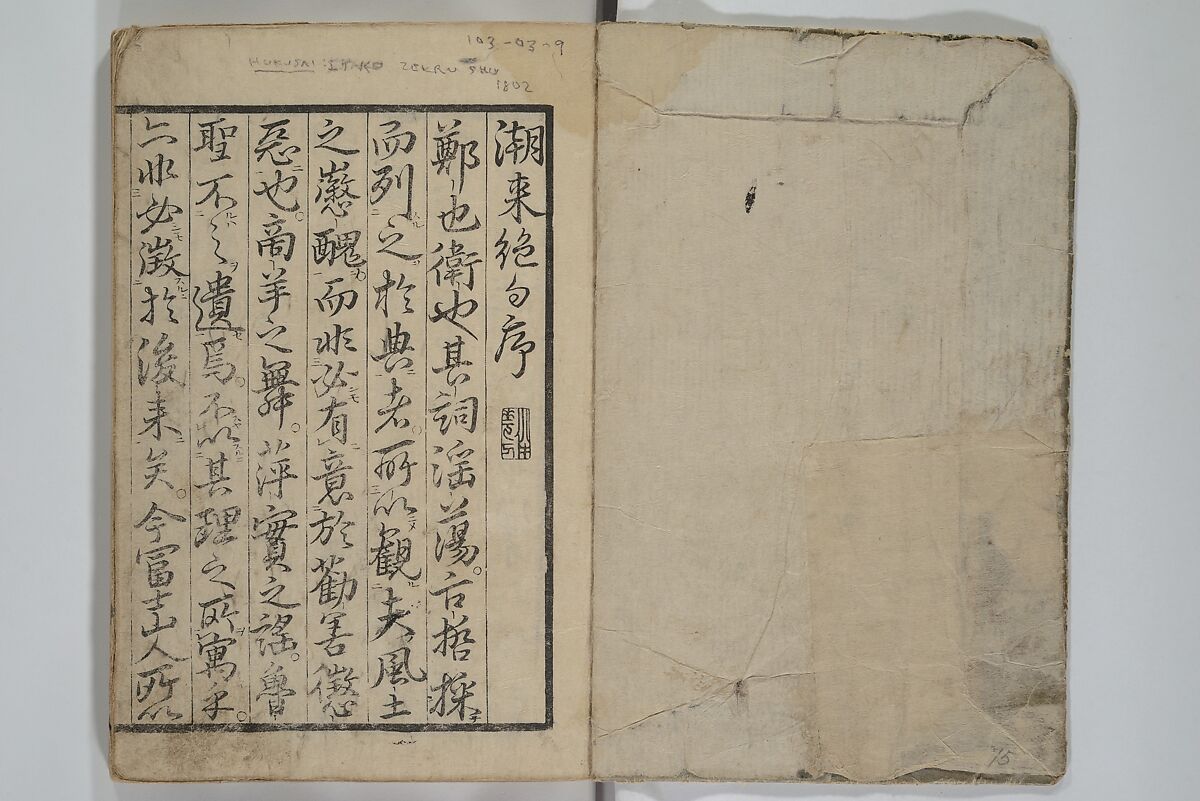 103-03-9
HUKUSAI : ITAKO ZEKKU SHU
1802
潮来絶句序
鄭也衛也其詞淫蕩。古哲採
而列之於典者。所以観夫風土
之懲醜而非必有意於勧善懲
惡也。商羊之舞。萍實之謡。魯
聖不之遺焉。不以其理之所寓乎。
亦非必徴於後来矣。今冨士山人所以
15